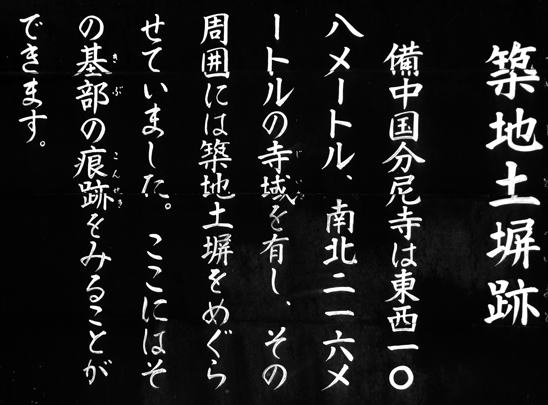 築地土塀跡
備中国分尼寺は東西一〇
八メートル、南北二一六メ
ートルの寺域を有し、その
周囲には築地土塀をめぐら
せていました。ここにはそ
の基部の痕跡をみることが
できます。